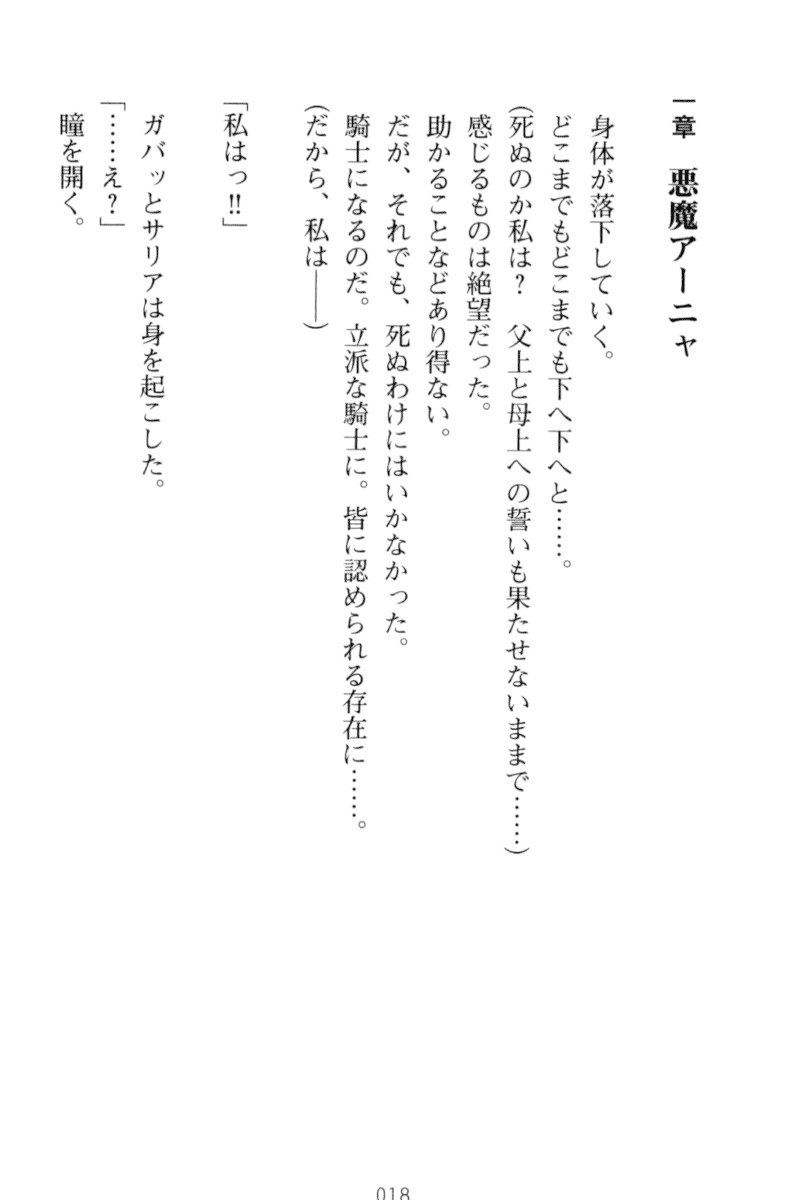 一章　悪魔アーニャ
身体が落下していく。
どこまでもどこまでも下へ下へと……。
(死ぬのか私は？　父上と母上への誓いも果たせないままで……)
感じるものは絶望だった。
助かることなどあり得ない。
だが、それでも、死ぬわけにはいかなかった。
騎士になるのだ。立派な騎士に。皆に認められる存在に……。
(だから、私は——)
「私はっ!!」
ガバッとサリアは身を起こした。
「……え？」
瞳を開く。
018